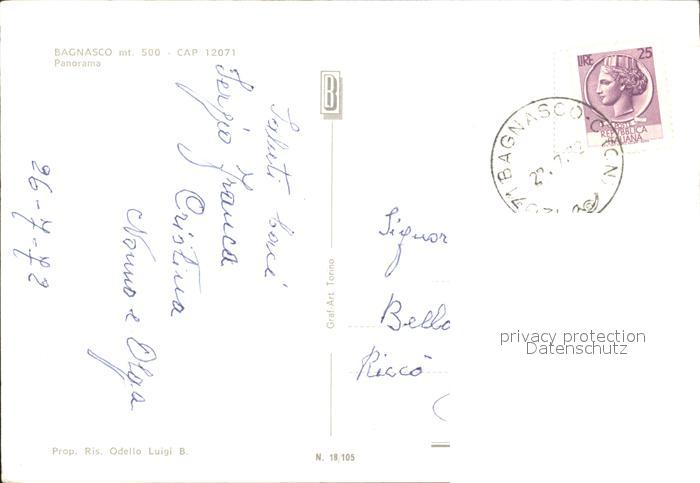 BAGNASCO mt. 500 - CAP 12071
Panorama
Saluti baci
Sergio Franca
Cristina
Nonno e Olga
26-7-72
B
Graf-Art. Torino
LIRE 25
POSTE
REPUBBLICA
ITALIANA
BAGNASCO (CN)
Signor
Bello
Riccò
privacy protection
Datenschutz
Prop. Ris. Odello Luigi B.
N. 18/105